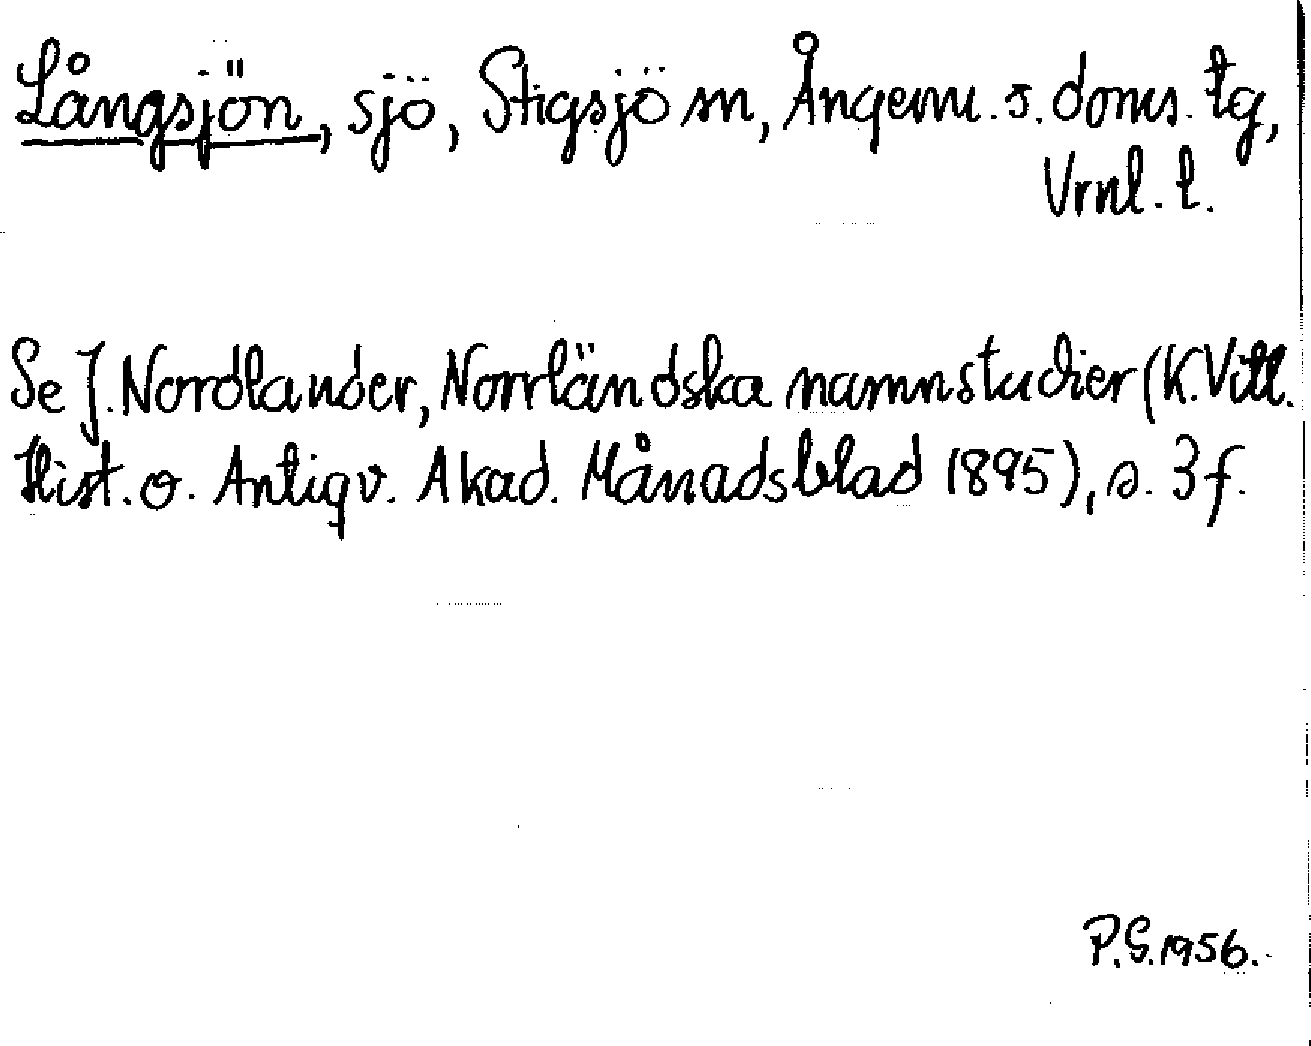 Långsjön, sjö, Stigsjö sn, Ångerm. s. doms. tg,
Vrnl. l.
Se J. Nordlander, Norrländska namnstudier (K. Vitt.
Hist. o. Antiqv. Akad. Månadsblad 1895), s. 3 f.
P.G. 1956.